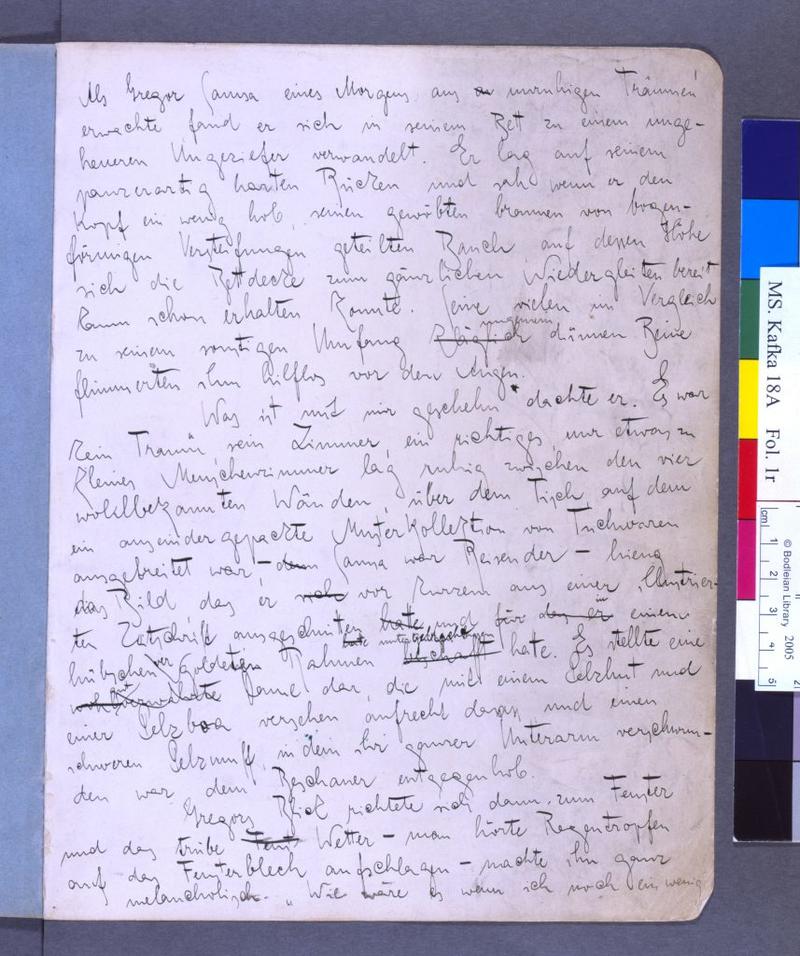 Als Gregor Samsa eines Morgens aus unruhigen Träumen
erwachte fand er sich in seinem Bett zu einem unge-
heueren Ungeziefer verwandelt. Er lag auf seinem
panzerartig harten Rücken und sah wenn er den
Kopf ein wenig hob, seinen gewölbten braunen von bogen-
förmigen Versteifungen geteilten Bauch auf dessen Höhe
sich die Bettdecke zum gänzlichen Niedergleiten bereit
kaum schon erhalten konnte. Seine vielen im Vergleich
zu seinem sonstigen Umfang kläglich dünnen Beine
flimmerten ihm hilflos vor den Augen.
Was ist mit mir geschehn dachte er. Es war
kein Traum, sein Zimmer, ein richtiges nur etwas zu
kleines Menschenzimmer lag ruhig zwischen den vier
wohlbekannten Wänden, über dem Tisch, auf dem
ein auseinandergepackte Musterkollektion von Tuchwaren
ausgebreitet war – Samsa war Reisender – hieng
das Bild, das er sich vor kurzem aus einer illustrier-
ten Zeitschrift ausgeschnitten hatte und für einem
hübschen vergoldeten Rahmen hatte. Es stellte eine
Dame dar, die mit einem Pelzhut und
einer Pelzboa versehen aufrecht dasass und einen
schweren Pelzmuff, in dem ihr ganzer Unterarm verschwun-
den war dem Beschauer entgegenhob.
Gregors Blick richtete sich dann zum Fenster
und das trübe Wetter – man hörte Regentropfen
auf das Fensterblech aufschlagen – machte ihn ganz
melancholisch. „Wie wäre es wenn ich noch ein wenig
MS. Kafka 18A Fol. 1r
cm 1 2 3 4 5
© Bodleian Library 2005